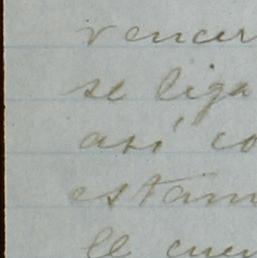 vencer
se liga
así co
estam
le cuer